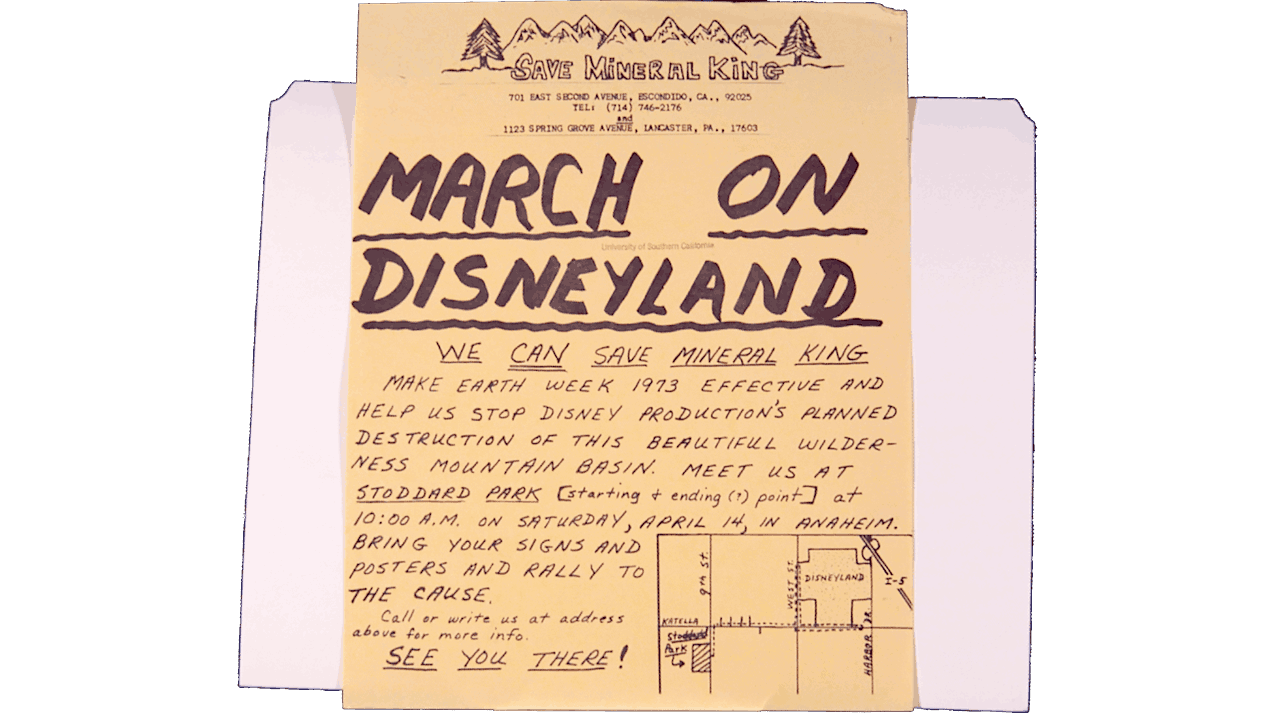 SAVE MINERAL KING
701 EAST SECOND AVENUE, ESCONDIDO, CA., 92025
TEL: (714) 746-2176
and
1123 SPRING GROVE AVENUE, LANCASTER, PA., 17603
MARCH ON
University of Southern California
DISNEYLAND
WE CAN SAVE MINERAL KING
MAKE EARTH WEEK 1973 EFFECTIVE AND
HELP US STOP DISNEY PRODUCTION'S PLANNED
DESTRUCTION OF THIS BEAUTIFUL WILDER-
NESS MOUNTAIN BASIN. MEET US AT
STODDARD PARK [starting & ending (?) point] at
10:00 A.M. ON SATURDAY, APRIL 14, IN ANAHEIM.
BRING YOUR SIGNS AND
POSTERS AND RALLY TO
THE CAUSE.
Call or write us at address
above for more info.
SEE YOU THERE!
9TH ST.
WEST ST.
DISNEYLAND
I-5
KATELLA
Stoddard
Park
HARBOR DR.